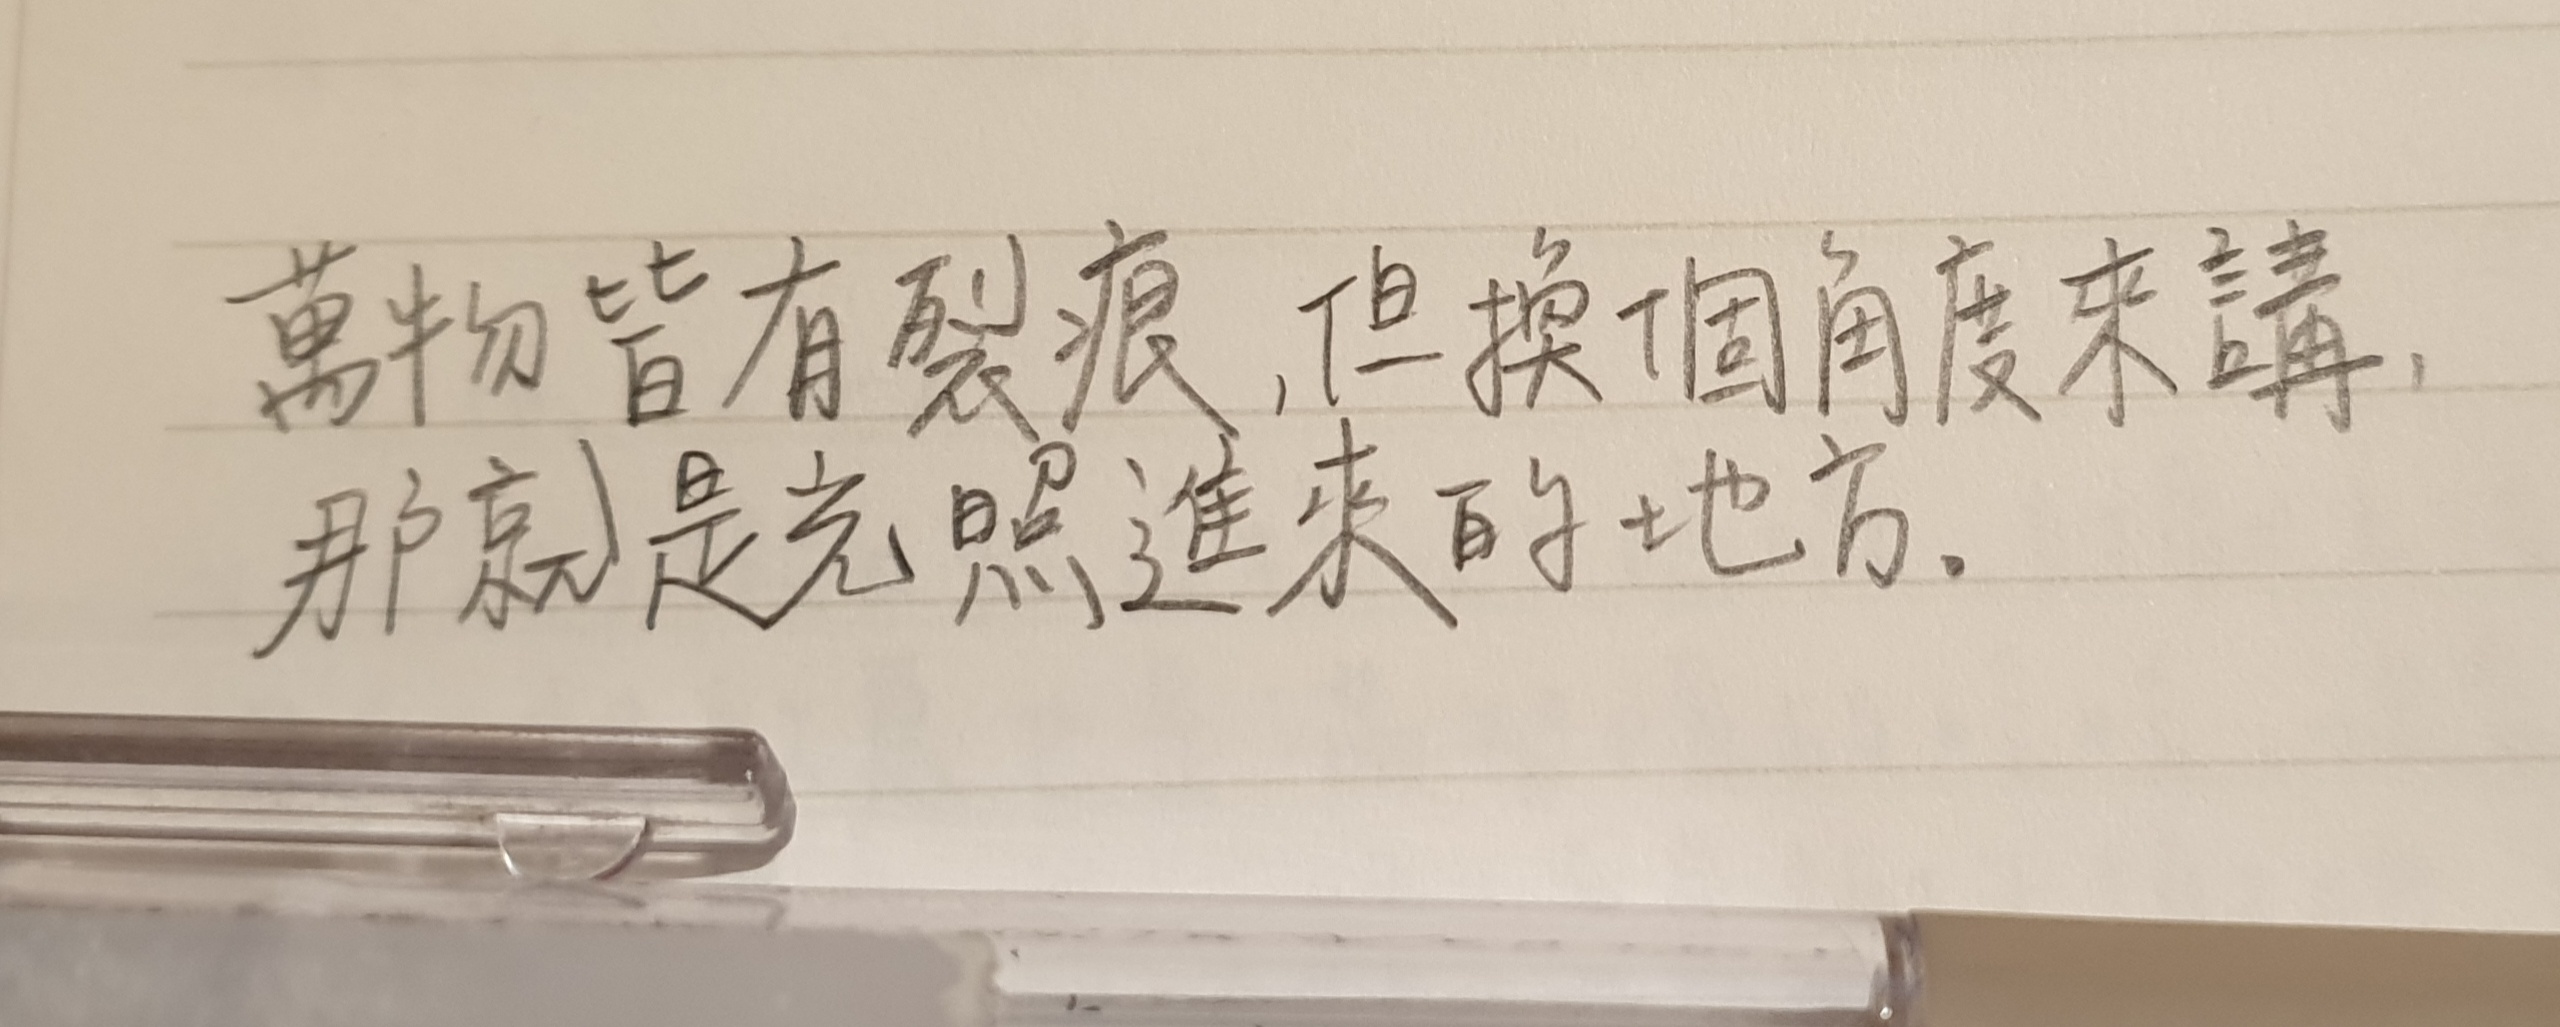 萬物皆有裂痕,但換個角度來講,
那就是光照進來的地方.